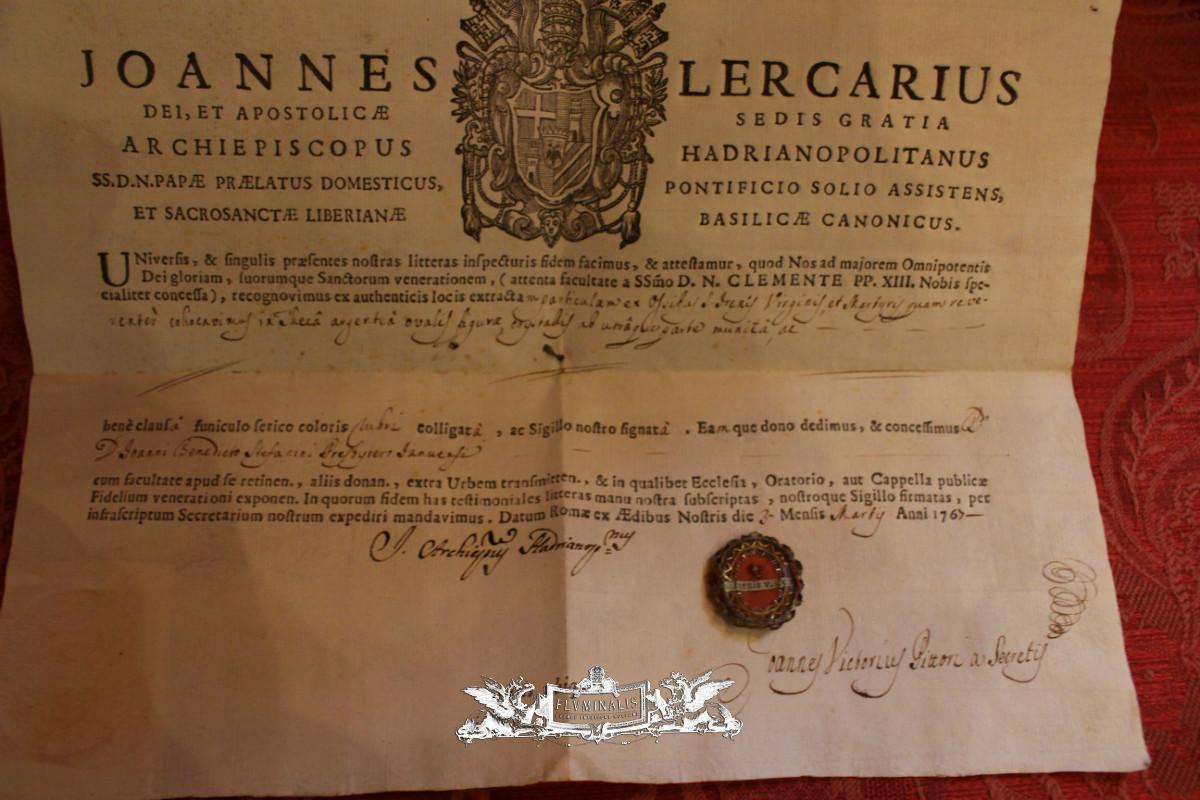 JOANNES LERCARIUS
DEI, ET APOSTOLICÆ SEDIS GRATIA
ARCHIEPISCOPUS HADRIANOPOLITANUS
SS.D.N.PAPÆ PRÆLATUS DOMESTICUS, PONTIFICIO SOLIO ASSISTENS,
ET SACROSANCTÆ LIBERIANÆ BASILICÆ CANONICUS.
UNiversis, & singulis præsentes nostras litteras inspecturis fidem facimus, & attestamur, quod Nos ad majorem Omnipotentis
Dei gloriam, suorumque Sanctorum venerationem, ( attenta facultate a SSmo D. N. CLEMENTE PP. XIII. Nobis spe-
cialiter concessa), recognovimus ex authenticis locis extractam particulam ex Ossibus S. Irenis Virginis, et Martyris quam reve-
renter collocavimus in Thecâ argenteâ ovalis figuræ crystallis ab utrâque parte munitâ, ac
benè clausâ funiculo serico coloris rubri colligatâ , ac Sigillo nostro signatâ . Eamque dono dedimus, & concessimus
D Joanni Benedicto Stefanini Presbytero Januensi
cum facultate apud se retinen., aliis donan., extra Urbem transmitten., & in qualibet Ecclesia, Oratorio, aut Cappella publicæ
Fidelium venerationi exponen. In quorum fidem has testimoniales litteras manu nostra subscriptas , nostroque Sigillo firmatas, per
infrascriptum Secretarium nostrum expediri mandavimus. Datum Romæ ex Ædibus Nostris die 3 Mensis Martij Anni 1767
J. Archiepus Hadrianop:nus
Joannes Victorius Pittori a Secretis
FLVMINALIS